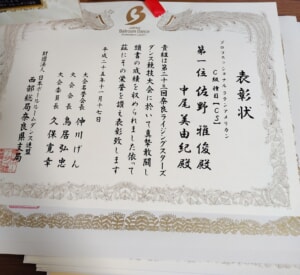 Ballroom Dance
表彰状
プロフェッショナルラテンアメリカン
C級 種目【CS】
第一位 佐野 雅俊殿
中尾 美由紀殿
貴組は第二十三回奈良ライジングスターズ
ダンス競技大会に於いて真摯敢闘し
頭書の成績を収められました依って
茲にその栄誉を讃え表彰致します
平成二十五年十一月十七日
大会名誉会長 仲川げん
大会会長 鳥居弘忠
大会委員長 久保寛幸
財団法人 日本ボールルームダンス連盟
西部総局奈良県支局